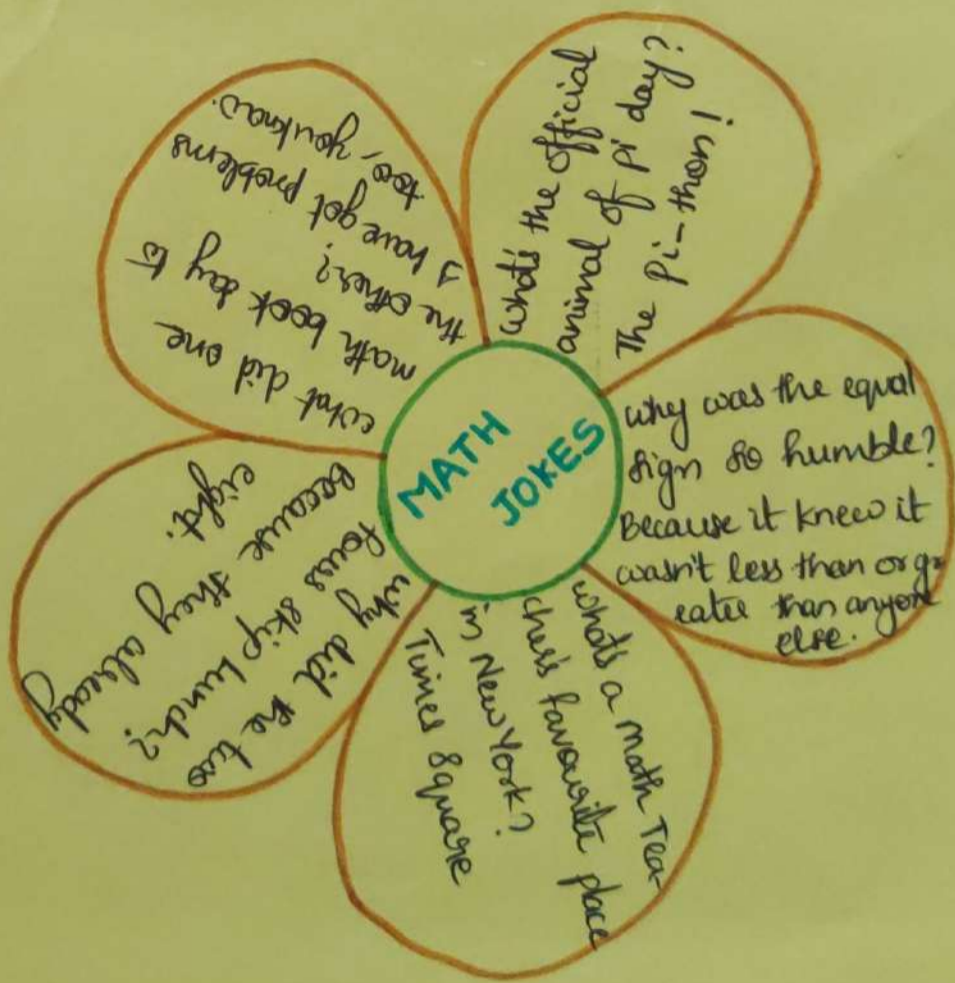 MATH
JOKES
What's the official
animal of pi day?
The Pi-thon!
Why was the equal
sign so humble?
Because it knew it
wasn't less than or gr-
eater than anyone
else.
What's a math Tea-
cher's favourite place
in New York?
Times Square
Why did the two
fours skip lunch?
because they already
eight.
What did one
math book day to
the other?
I have got problems
too, you know.